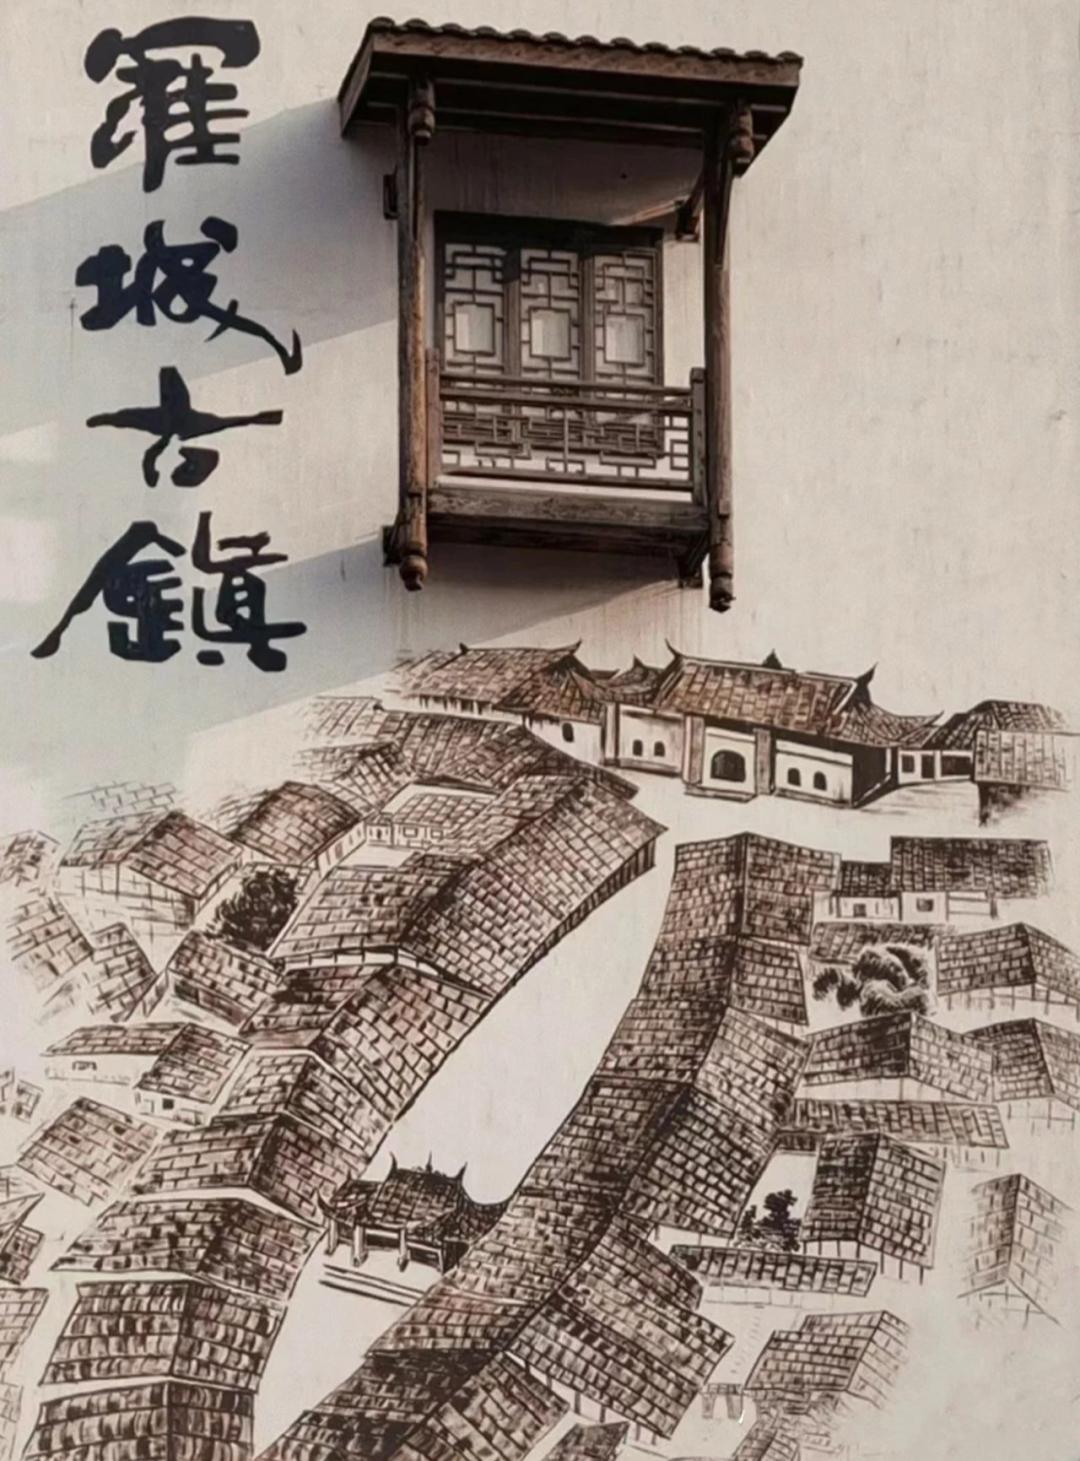 羅城古鎮